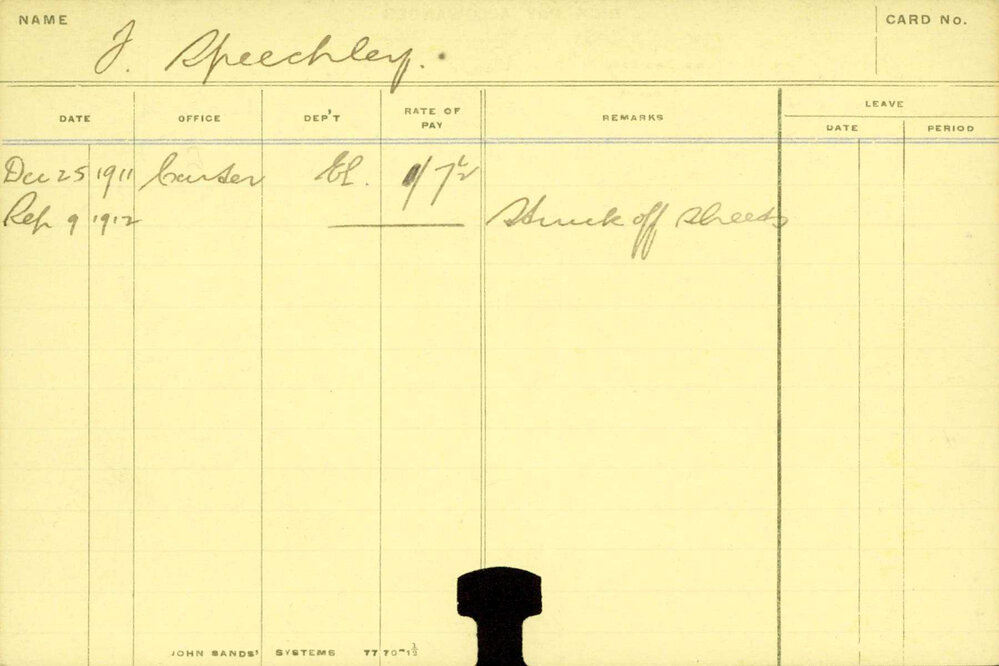 NAME J. Speechley. CARD No.
DATE OFFICE DEP'T RATE OF PAY REMARKS LEAVE DATE PERIOD
Dec 25 1911 Carter El. 1/7½
Sep 9 1912 Struck off sheets
JOHN SANDS' SYSTEMS 7770-1½